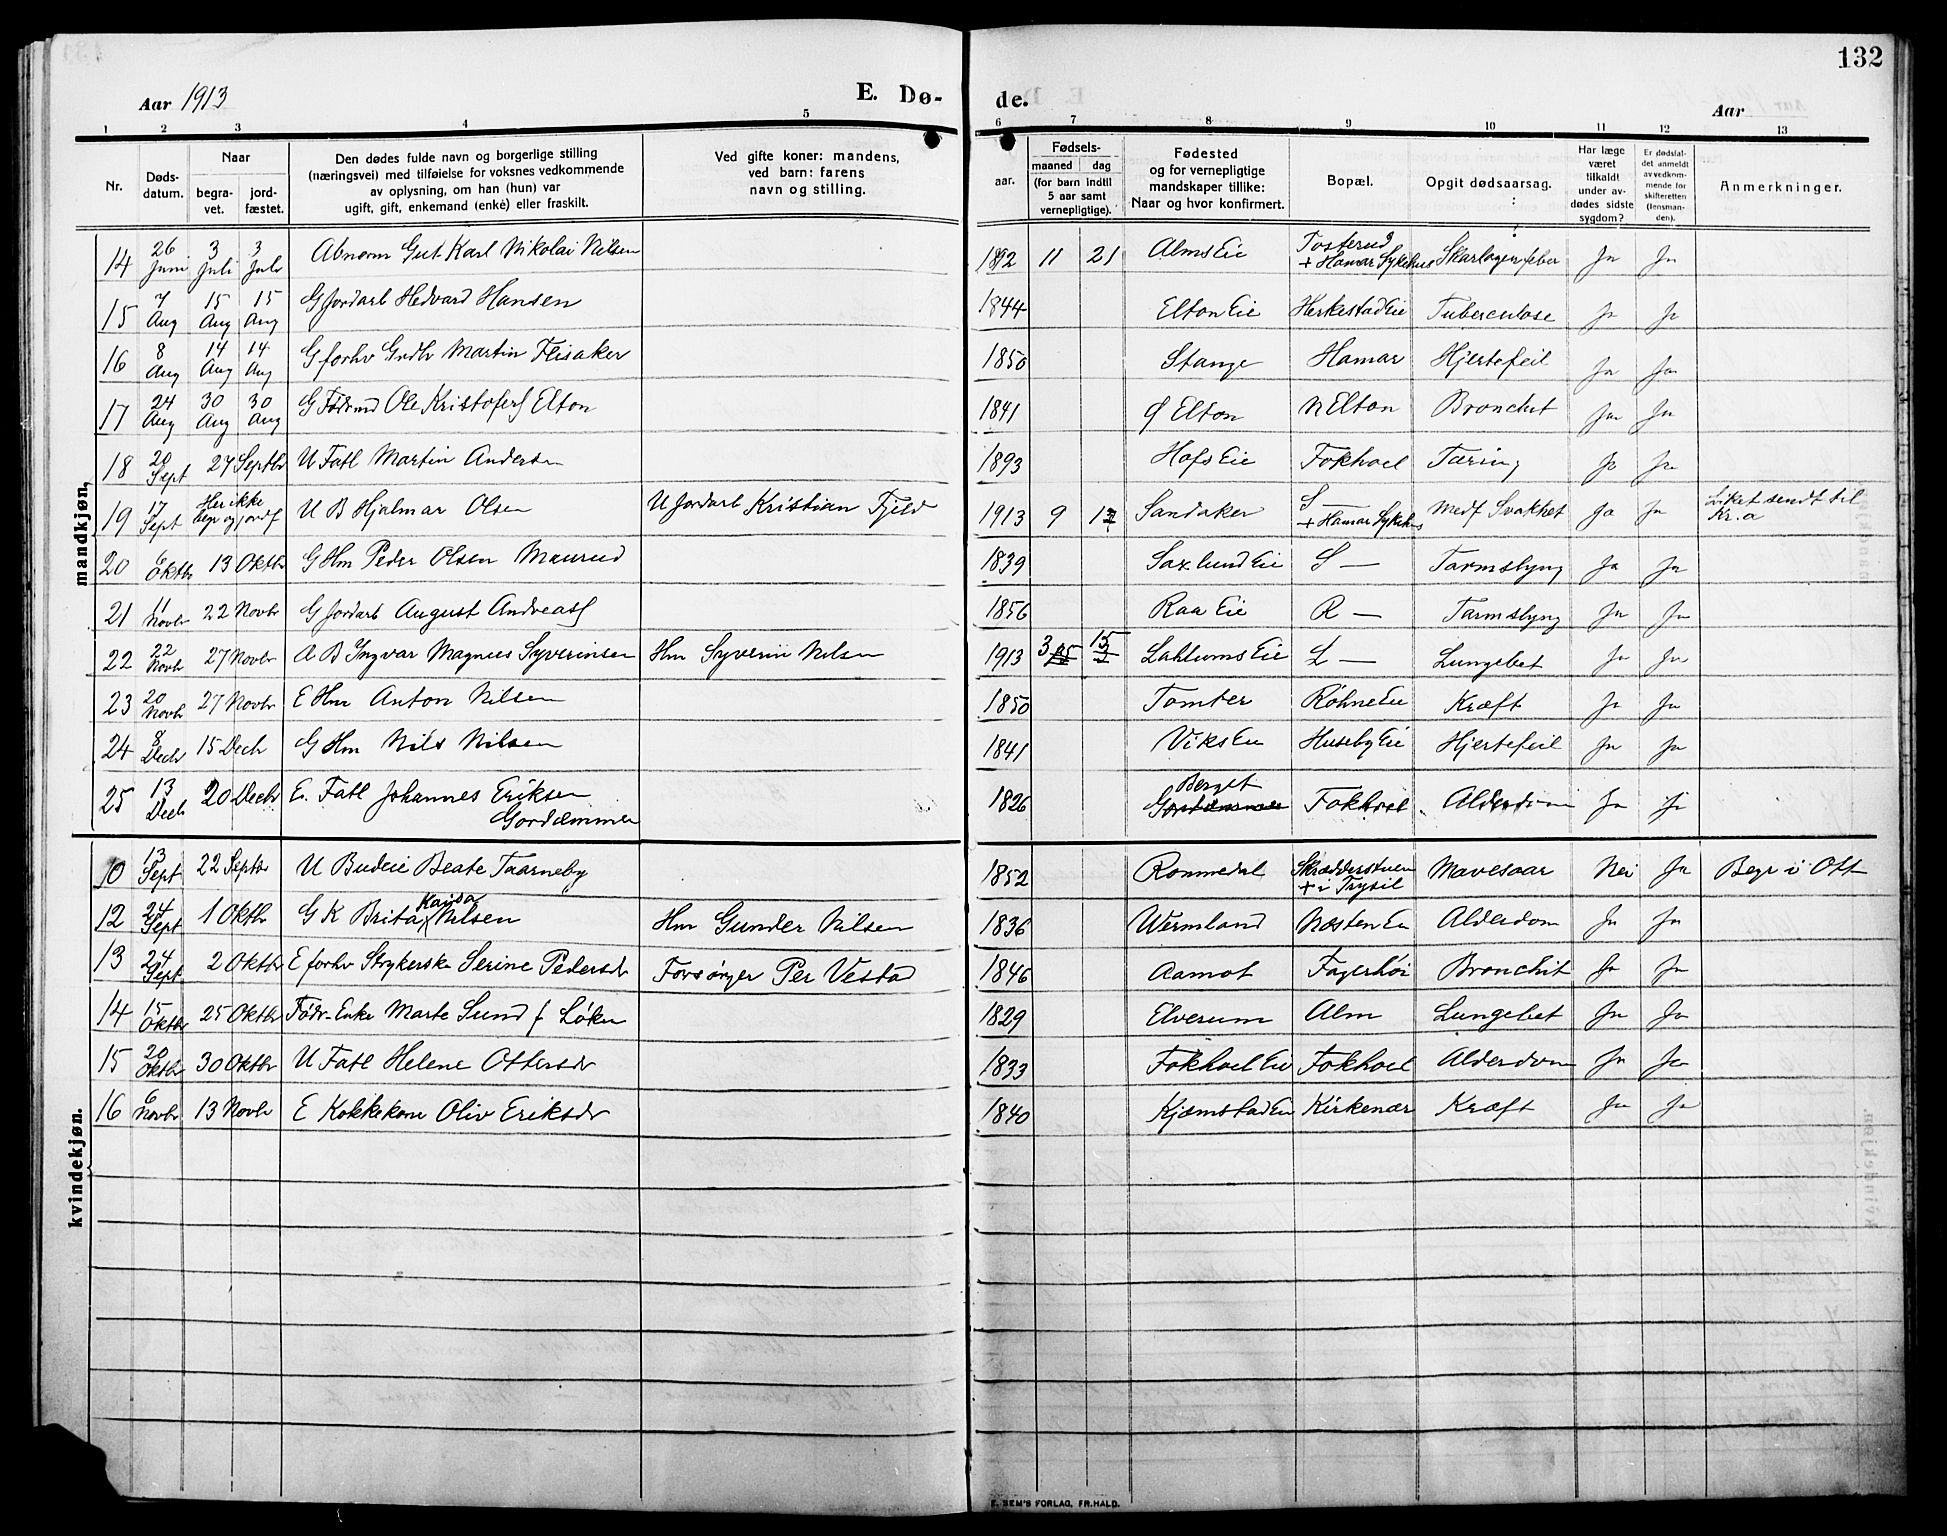 132
Aar 1913 E. Dø- de. Aar
1 2 3 4 5 6 7 8 9 10 11 12 13
Nr. Døds-datum. Naar begra-vet. jord-fæstet. Den dødes fulde navn og borgerlige stilling (næringsvei) med tilføielse for voksnes vedkommende av oplysning, om han (hun) var ugift, gift, enkemand (enke) eller fraskilt. Ved gifte koner: mandens, ved barn: farens navn og stilling. Fødsels- aar. maaned dag (for barn indtil 5 aar samt vernepligtige). Fødested og for vernepligtige mandskaper tillike: Naar og hvor konfirmert. Bopæl. Opgit dødsaarsag. Har læge været tilkaldt under av-dødes sidste sygdom? Er dødsfal-det anmeldt av vedkom-mende for skifteretten (lensman-den). Anmerkninger.
mandkjøn.
14 26 Juni 3 Juli 3 Juli Abnorm Gut Karl Nikolai Nilsen 1892 11 21 Alms Eie Tosterud + Hamar Sykehus Skarlagensfeber Ja Ja
15 7 Aug 15 Aug 15 Aug G Jordarb Hedvard Hansen 1844 Elton Eie Herkestad Eie Tuberculose Ja Ja
16 8 Aug 14 Aug 14 Aug G forhv Grdbr Martin Flisaker 1850 Stange Hamar Hjertefeil Ja Ja
17 24 Aug 30 Aug 30 Aug G Fødrmd Ole Kristofers Elton 1841 Ø Elton N Elton Bronchit Ja Ja
18 20 Sept 27 Septbr U Fatl Martin Andersen 1893 Hofs Eie Fokhoel Tæring Ja Ja
19 17 Sept Her ikke begr og jordf U B Hjalmar Olsen U Jordarb Kristian Fjeld 1913 9 Sandaker S — + Hamar Sykehus Medf Svakhet Ja Ja Liket sendt til Kr.a
20 Oktbr 13 Oktbr G Hm Peder Olsen Maurud 1839 Saxlund Eie S — Tarmslyng Ja Ja
21 11 Novbr 22 Novbr G Jordarb August Andreas 1856 Raa Eie R — Tarmslyng Ja Ja
22 22 Novbr 27 Novbr A B Ingvar Magnus Syverinsen Hm Syverin Nilsen 1913 3 15 Lahlums Eie L — Lungebet Ja Ja
23 20 Novbr 27 Novbr E Hm Anton Nilsen 1850 Tomter Røhne Eie Kræft Ja Ja
24 8 Decb 15 Decb G Hm Nils Nilsen 1841 Viks Eie Huseby Eie Hjertefeil Ja Ja
25 13 Decb 20 Decbr E. Fatl Johannes Eriksen Gordæmmen 1826 Berget Fokhoel Alderdom Ja Ja
kvindekjøn.
10 13 Sept 22 Septbr U Budeie Beate Taarneby 1852 Rommedal Skrædderstuen + i Trysil Mavesaar Nei Ja Begr i Ott
12 24 Sept 1 Oktbr G K Brita Kaisa Nilsen Hm Gunder Nilsen 1836 Wermland Næsten Eie Alderdom Ja Ja
13 24 Sept 2 Oktbr E forhv Strykerske Serine Pedersdr Forsørger Per Vestad 1846 Aamot Fagerhøi Bronchit Ja Ja
14 15 Oktbr 25 Oktbr Fødr-Enke Marte Sund f Løken 1829 Elverum Alm Lungebet Ja Ja
15 20 Oktbr 30 Oktbr U Fatl Helene Ottersdr 1833 Fokhoel Eie Fokhoel Alderdom Ja Ja
16 6 Novbr 13 Novbr E Kokkekone Oliv Eriksdr 1840 Kjæmstad Eie Kirkenær Kræft Ja Ja
E. SEM'S FORLAG, FR.HALD.